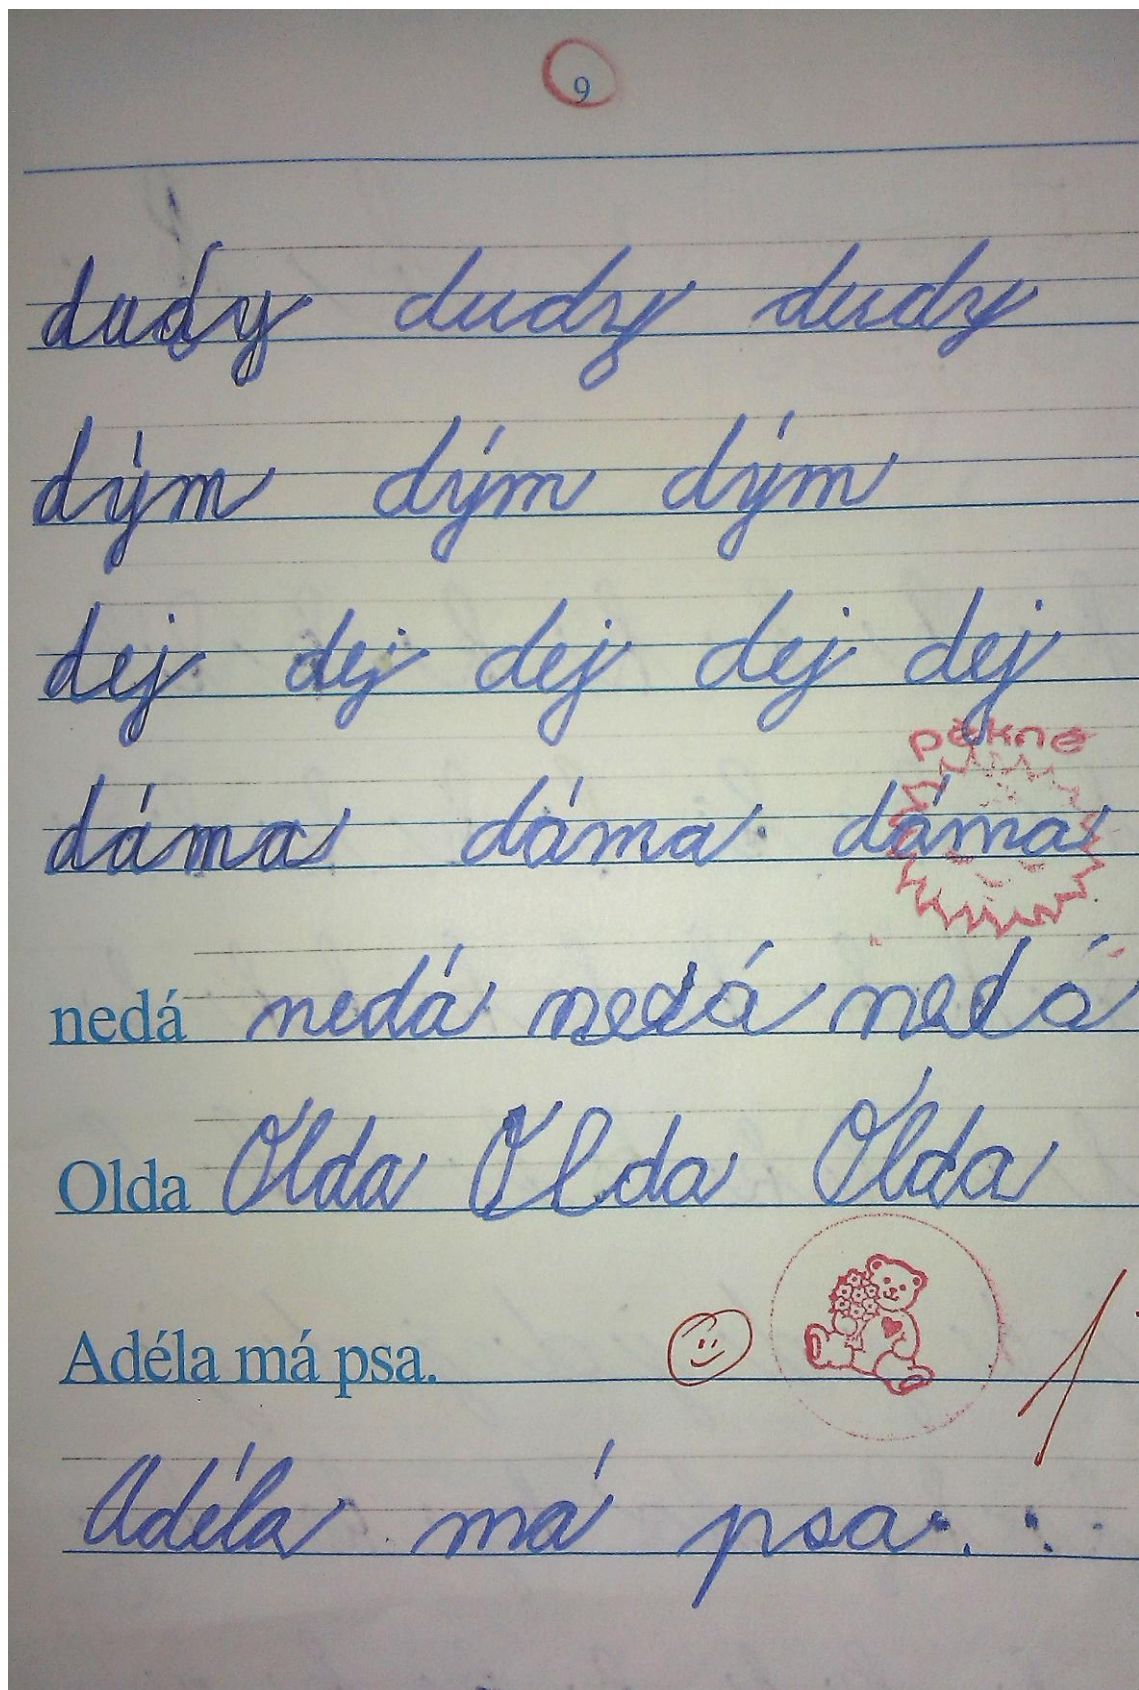 9
dudy dudy dudy
dým dým dým
dej dej dej dej dej
pěkné
dáma dáma dáma
nedá nedá nedá nedá
Olda Olda Olda Olda
Adéla má psa.
1
Adéla má psa.